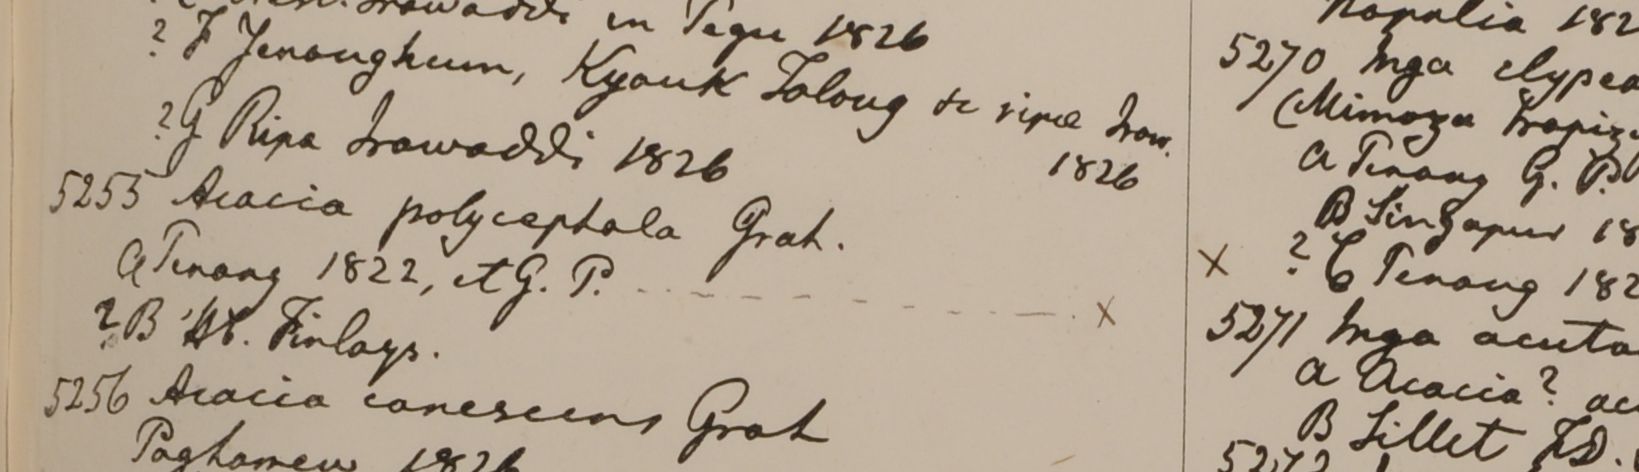 Irawaddi in Pegu 1826
? F Yenanghuen, Kyouk Talong & ripæ Iraw.
1826
? G Ripa Irawaddi 1826
5255 Acacia polycephala Grah.
A Penang 1822, et G. P. x
? B Hb. Finlays.
5256 Acacia canescens Grah
Paghamew 1826
Napalia 182
5270 Inga clypea
(Mimosa trapizi
A Penang G. P.
B Singapur 18
x ? C Penang 182
5271 Inga acuta
A Acacia? ac
B Sillet F.D.
5272